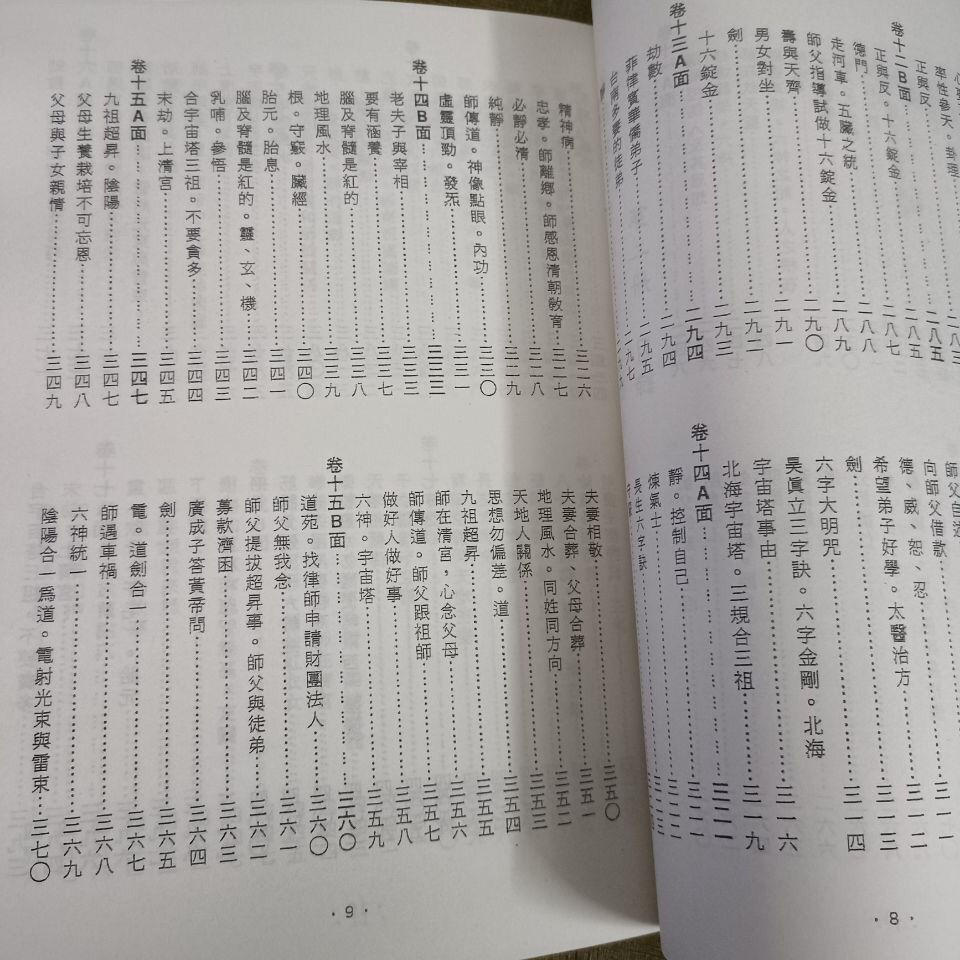 率性參天。卦理……二八三
正與反……二八五
卷十二B面……二八五
正與反。十六錠金……二八七
德門……二八八
走河車。五臟之統……二八九
師父指導試做十六錠金……二九〇
壽與天齊……二九一
男女對坐……二九二
劍……二九三
十六錠金……二九四
卷十三A面……二九四
劫數……二九五
菲律賓華僑弟子……二九七
向師父借款
德、威、恕、忍……三一二
希望弟子好學。太醫治方……三一三
劍……三一四
六字大明咒
昊真立三字訣。六字金剛。北海
宇宙塔事由……三一六
北海宇宙塔。三規合三祖……三一九
卷十四A面……三二一
靜。控制自己……三二一
煉氣士
長生六字訣
·8·
精神病……三二六
忠孝。師離鄉。師感恩清朝教育……三二七
必靜必清……三二八
純靜……三二九
師傳道。神像點眼。內功……三三〇
虛靈頂勁。發炁……三三一
卷十四B面……三三三
老夫子與宰相……三三三
要有涵養……三三五
腦及脊髓是紅的……三三八
地理風水……三三九
根。守竅。臟經……三四〇
胎元。胎息……三四一
腦及脊髓是紅的。靈、玄、機……三四二
乳哺。參悟……三四三
合宇宙塔三祖。不要貪多……三四四
末劫。上清宮……三四五
卷十五A面……三四七
九祖超昇。陰陽……三四七
父母生養栽培不可忘恩……三四八
父母與子女親情……三四九
夫妻相敬……三五〇
夫妻合葬、父母合葬……三五一
地理風水。同姓同方向……三五二
天地人關係……三五三
思想勿偏差。道……三五四
九祖超昇……三五五
師在清宮，心念父母……三五六
師傳道。師父跟祖師……三五七
做好人做好事……三五八
六神。宇宙塔……三五九
卷十五B面……三六〇
道苑。找律師申請財團法人……三六〇
師父無我念……三六一
師父提拔超昇事。師父與徒弟……三六二
募款濟困……三六三
廣成子答黃帝問……三六四
劍……三六五
電。道劍合一……三六七
師遇車禍……三六八
六神統一……三六九
陰陽合一為道。電射光束與雷束……三七〇
·9·